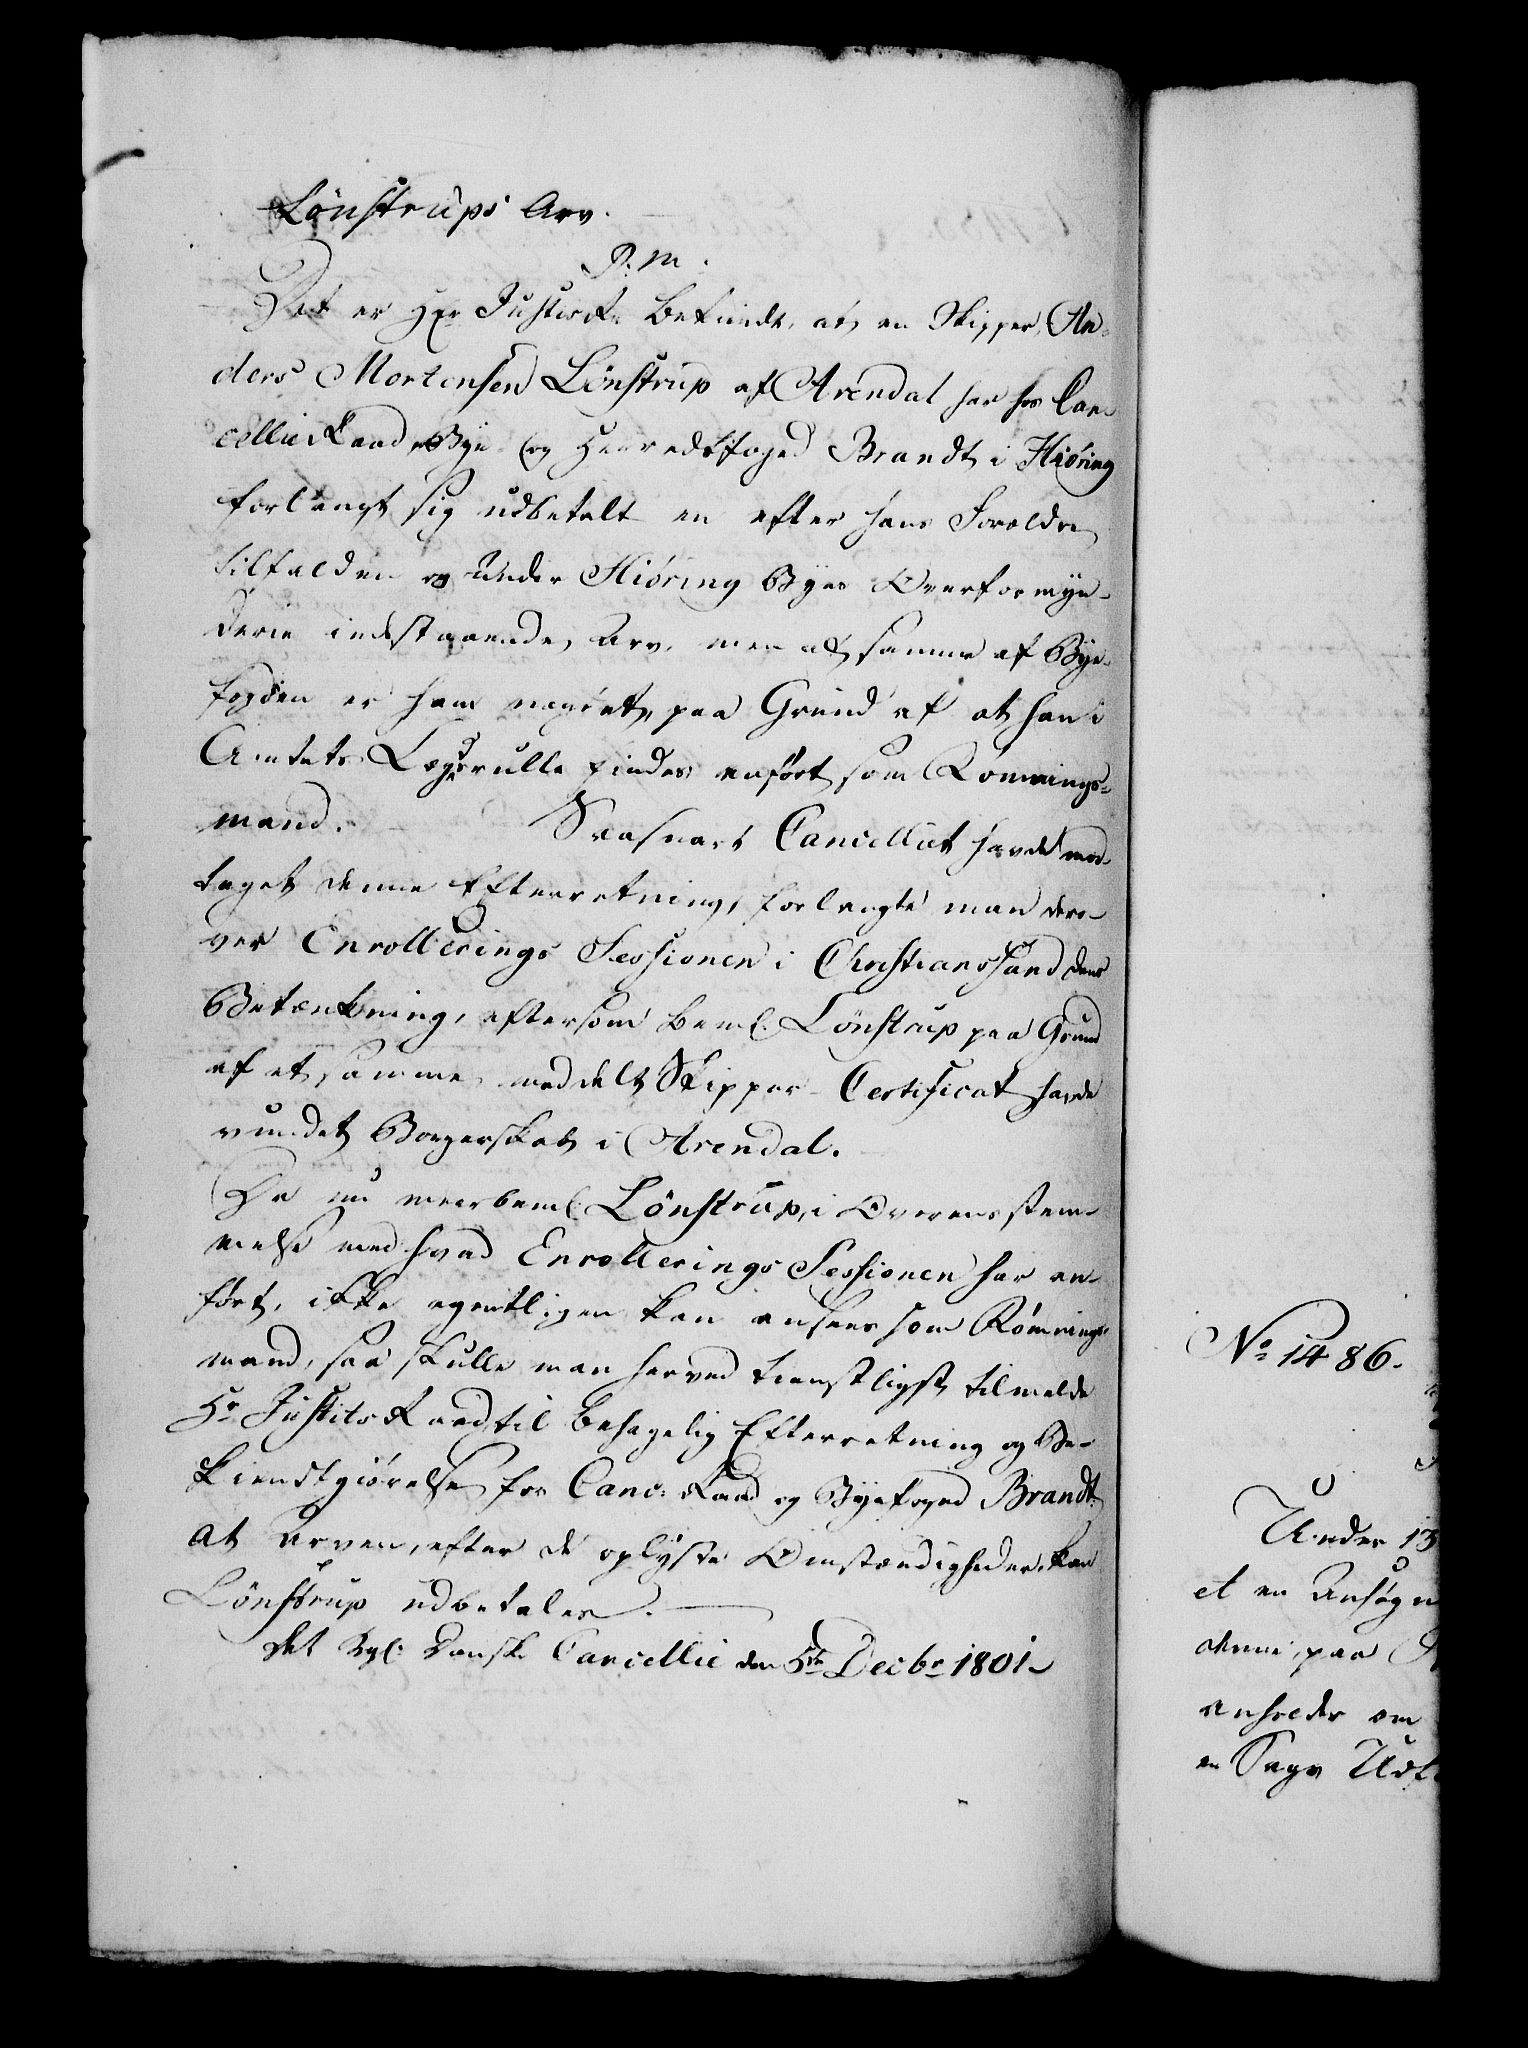 Lönstrups Arv.
P. M.
Det er Hr Justitsr: bekiendt, at en Skipper An-
ders Mortensen Lönstrup af Arendal har hos Can-
cellie Raad, Bye- og Herredsfoged Brandt i Hiöring
forlangt sig udbetalt en efter hans Forældre
tilfalden og under Hiöring Byes Overformyn-
derie indestaaende Arv, men at samme af Bye-
fogden er ham negtet, paa Grund af at han i
Amtets Lægdsrulle findes anfört som Römnings-
mand. Saasnart Cancelliet havde mod-
taget denne Efterretning, forlangte man der-
over Enrollerings Sessionen i Christianssand dens
Betænkning, eftersom beml. Lönstrup paa Grund
af et samme meddelt Skipper-Certificat havde
vundet Borgerskab i Arendal.
Da nu meerbeml. Lönstrup, i Overensstem-
melse med hvad Enrollerings Sessionen har an-
fört, ikke egentligen kan ansees som Römnings-
mand, saa skulle man herved tienstligst tilmelde
Hr Justits Raad til behagelig Efterretning og Be-
kiendtgiörelse for Canc: Raad og Byefoged Brandt
at Arven, efter de oplyste Omstændigheder, kan
Lönstrup udbetales.
Det Kgl: Danske Cancellie den 5te Decbr 1801
No 1486.
Under 13
et en Ansögn
denne, paa
anholder om
en Sags Udf